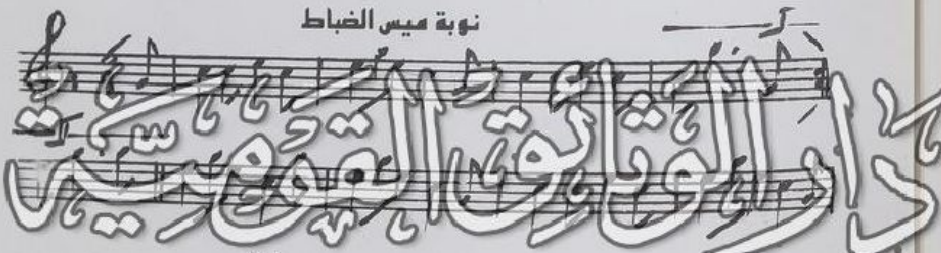 نوبة ميس الضباط
دار الوثائق القومية